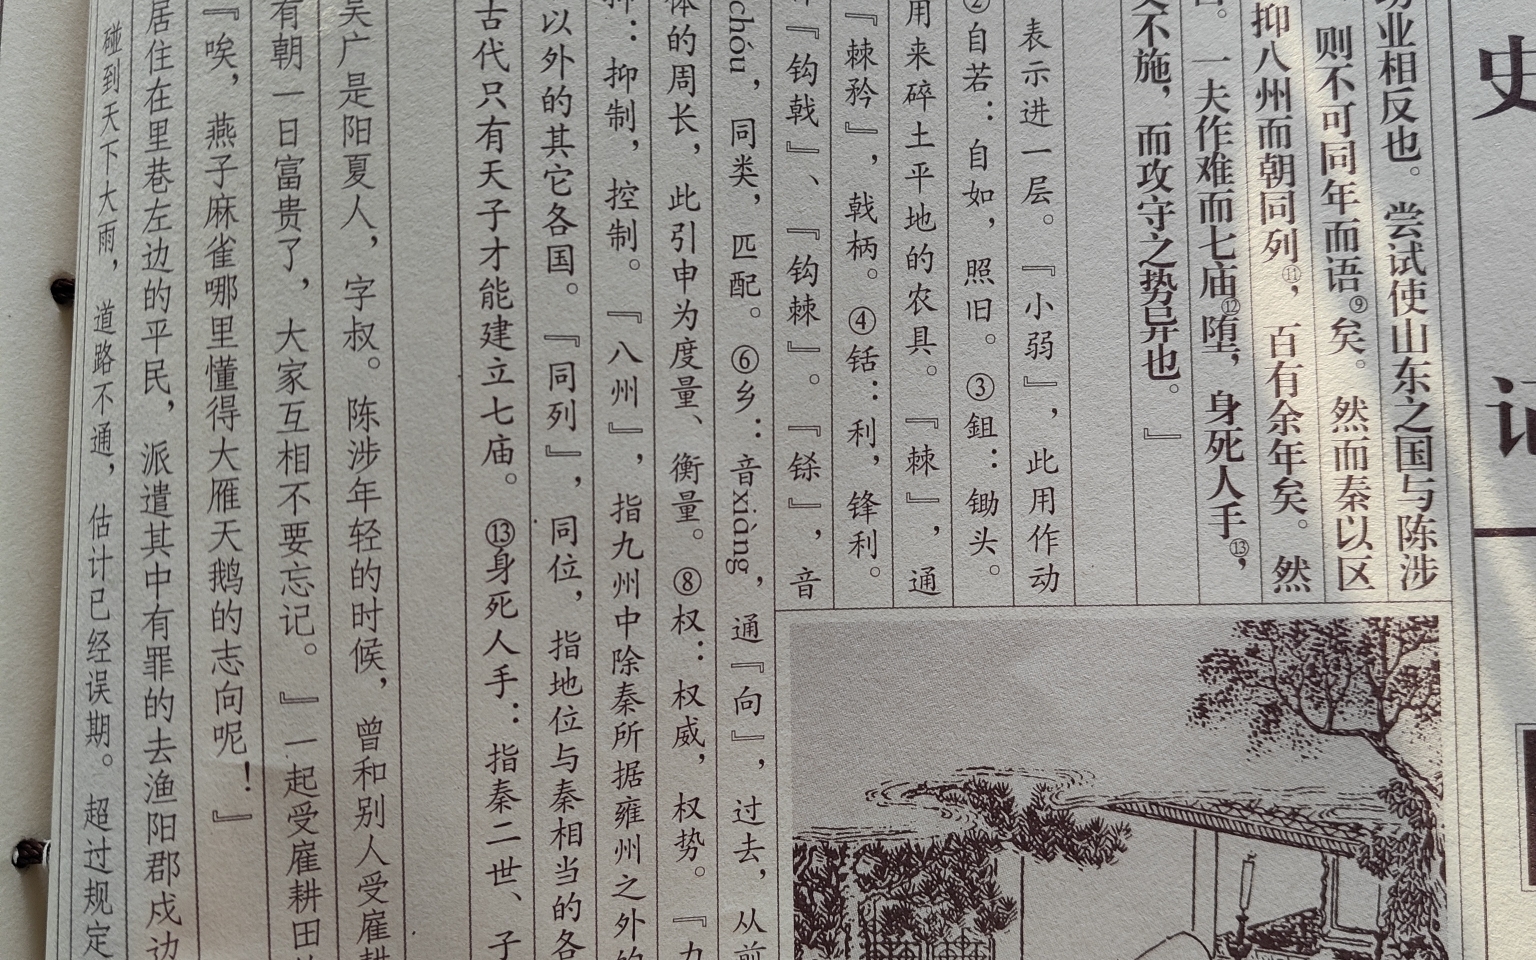 史
记
业相反也。尝试使山东之国与陈涉
则不可同年而语⑨矣。然而秦以区
抑八州而朝同列⑪，百有余年矣。然
一夫作难而七庙⑫堕，身死人手⑬，
不施，而攻守之势异也。』
表示进一层。『小弱』，此用作动
②自若：自如，照旧。③鉏：锄头。
用来碎土平地的农具。『棘』，通
『棘矜』，戟柄。④铦：利，锋利。
『钩戟』、『钩棘』。『铩』，音
chóu，同类，匹配。⑥乡：音xiàng，通『向』，过去，从前
的周长，此引申为度量、衡量。⑧权：权威，权势。『
抑：抑制，控制。『八州』，指九州中除秦所据雍州之外的
以外的其它各国。『同列』，同位，指地位与秦相当的各
古代只有天子才能建立七庙。⑬身死人手：指秦二世、子
吴广是阳夏人，字叔。陈涉年轻的时候，曾和别人受雇耕
有朝一日富贵了，大家互相不要忘记。』一起受雇耕田
『唉，燕子麻雀哪里懂得大雁天鹅的志向呢！』
居住在里巷左边的平民，派遣其中有罪的去渔阳郡戍边
碰到天下大雨，道路不通，估计已经误期。超过规定